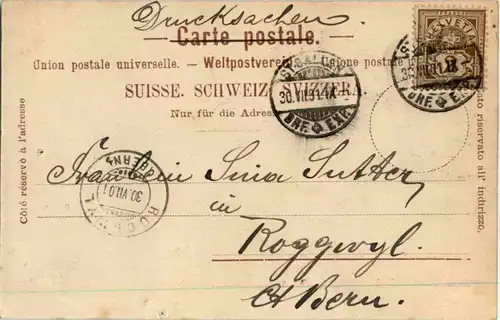 Drucksachen.
Carte postale.
Union postale universelle. – Weltpostverein. – Unione postale
SUISSE. SCHWEIZ. SVIZZERA.
Nur für die Adresse
Côté réservé à l'adresse
Lato riservato all' indirizzo.
HELVETIA
ST. GALLEN
30.VII.01.
BRF. EXP.
BRF. EXP.
30.VII.01
(BERN)
Fräulein Lina Sutter,
in
Roggwyl.
Ct Bern.